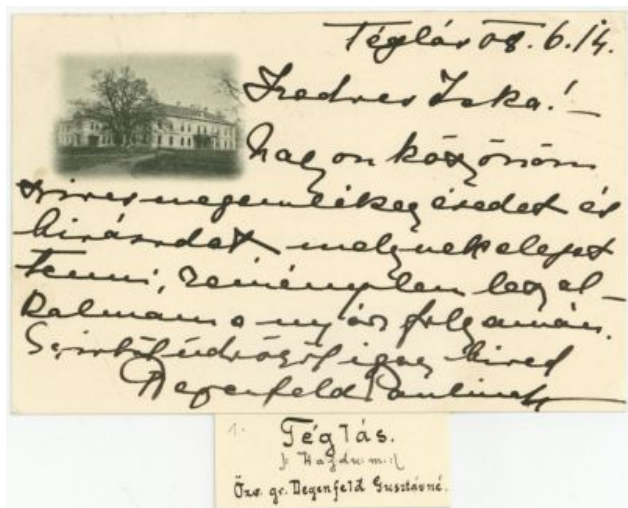 Téglás 08. 6./4.
Kedves Iska! –
Nagyon köszönöm
szives megemlékezésedet és
hivásodat melynek eleget
tenni, reménylem lesz al-
kalmam a nyár folyamán.
Szivből üdvözöl igaz hived
Degenfeld Pauline
1.
Téglás.
Hajdu m.
Özv. gr. Degenfeld Gusztávné.